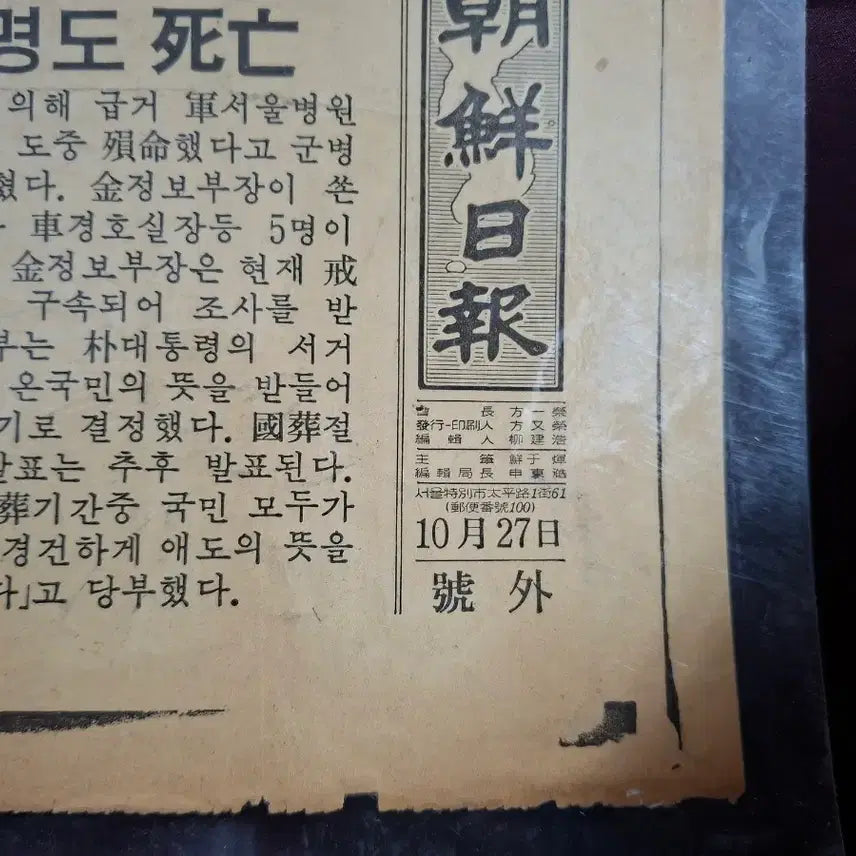 명도 死亡
의해 급거 軍서울병원
도중 殞命했다고 군병
혔다. 金정보부장이 쏜
車경호실장등 5명이
金정보부장은 현재 戒
구속되어 조사를 받
부는 朴대통령의 서거
온국민의 뜻을 받들어
기로 결정했다. 國葬절
발표는 추후 발표된다.
葬기간중 국민 모두가
경건하게 애도의 뜻을
다」고 당부했다.
朝鮮日報
會長 方一榮
發行·印刷人 方又榮
編輯人 柳建浩
主筆 鮮于煇
編輯局長 申東澔
서울特別市太平路1街61
(郵便番號100)
10月27日
號外